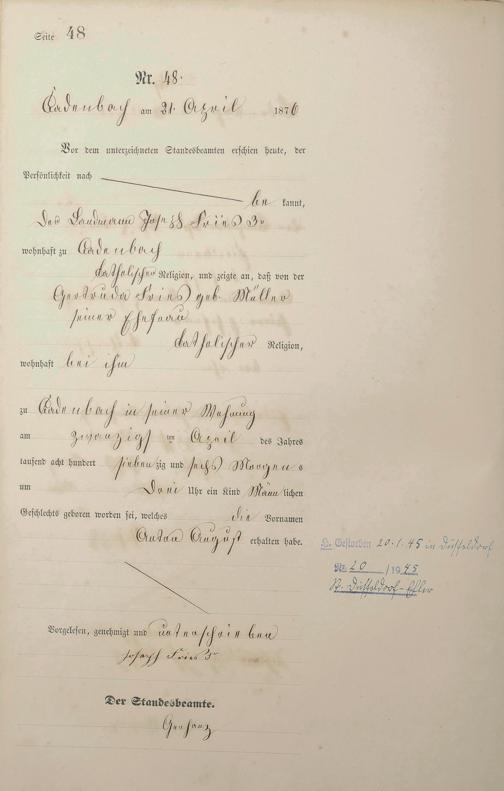 Seite 48
Nr. 48.
Cadenbach am 21. April 1876
Vor dem unterzeichneten Standesbeamten erschien heute, der
Persönlichkeit nach
be kannt,
der Landmann Joseph Fries 3r
wohnhaft zu Cadenbach
katholischer Religion, und zeigte an, daß von der
Gertruda Fries geb. Müller
seiner Ehefrau
katholischer Religion,
wohnhaft bei ihm
zu Cadenbach in seiner Wohnung
am zwanzigst en April des Jahres
tausend acht hundert siebenzig und sechs Morgens
um Drei Uhr ein Kind Männlichen
Geschlechts geboren worden sei, welches die Vornamen
Anton August erhalten habe.
Vorgelesen, genehmigt und unterschrieben
Joseph Fries 3r
Der Standesbeamte.
H. Gestorben 20.1.45 in Düsseldorf
Nr. 20 / 1945
St. Düsseldorf-Eller